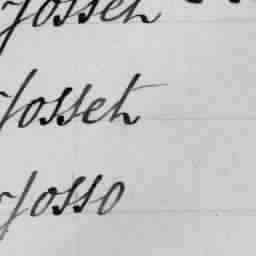 Josset
Josset
Josso